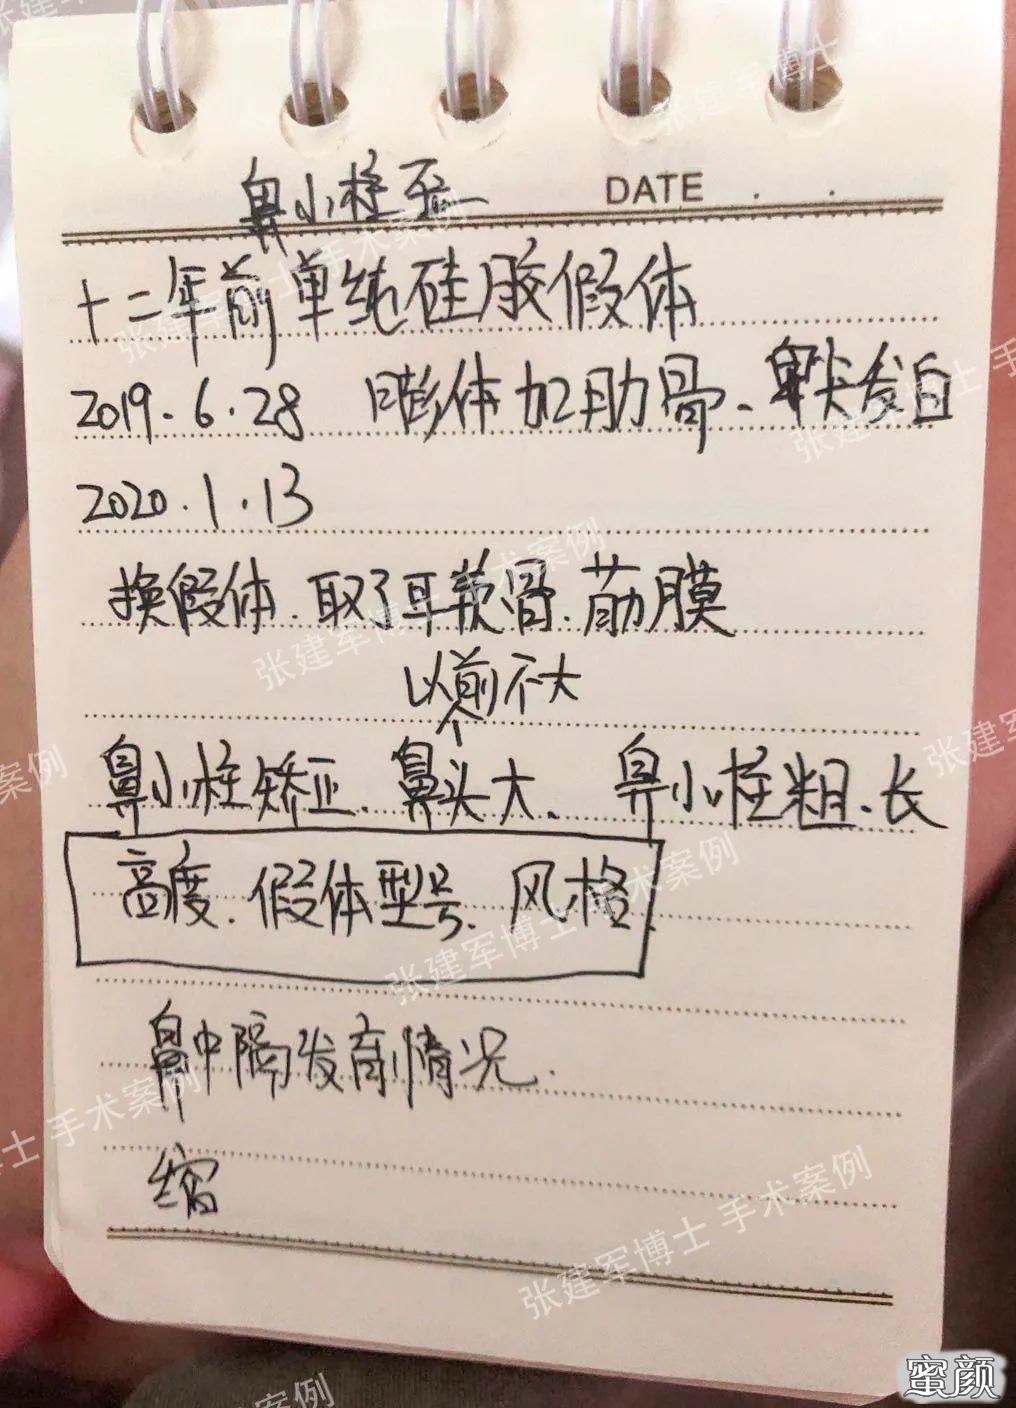 鼻小柱歪
DATE . .
十二年前单纯硅胶假体
2019.6.28 膨体加肋骨、鼻尖发白
2020.1.13
换假体、取了耳软骨、筋膜
以前不大
鼻小柱矫正、鼻头大、鼻小柱粗、长
高度、假体型号、风格
鼻中隔发育情况.
缩
张建军博士 手术案例
蜜颜